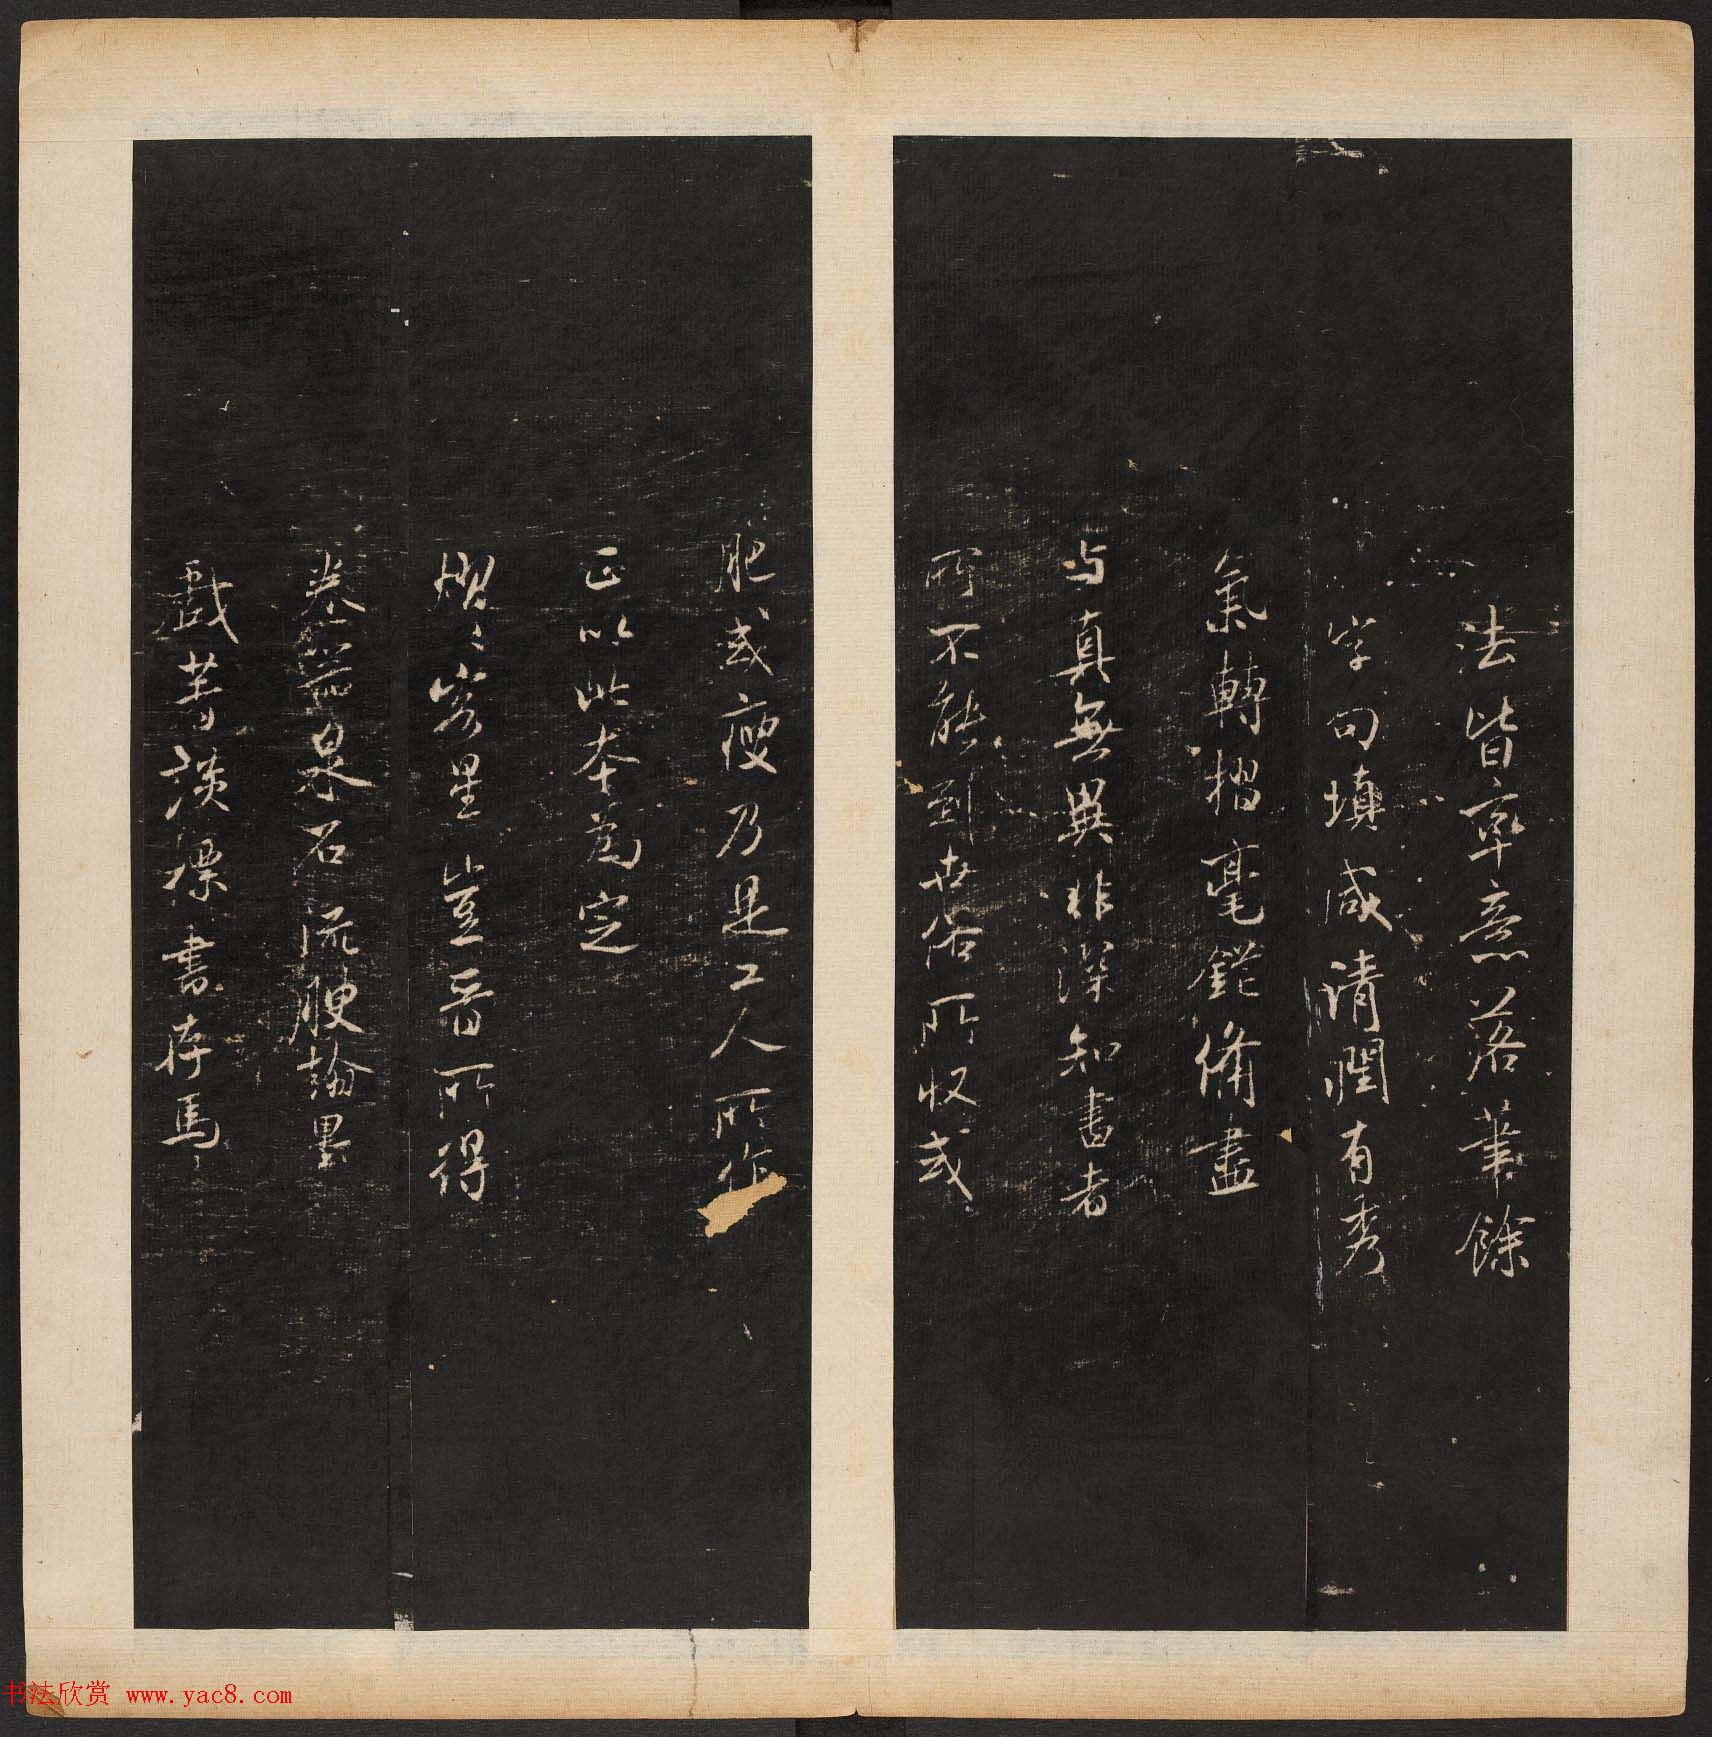 法皆率意落筆餘
字句填咸清潤有秀
氣轉摺毫鋩備盡
与真無異非深知書者
所不能到世俗所收或
肥或瘦乃是工人所作
正以此本為定
熠〻客星豈晉所得
卷器泉石流腴翰墨
戲著談標書存馬
书法欣赏 www.yac8.com